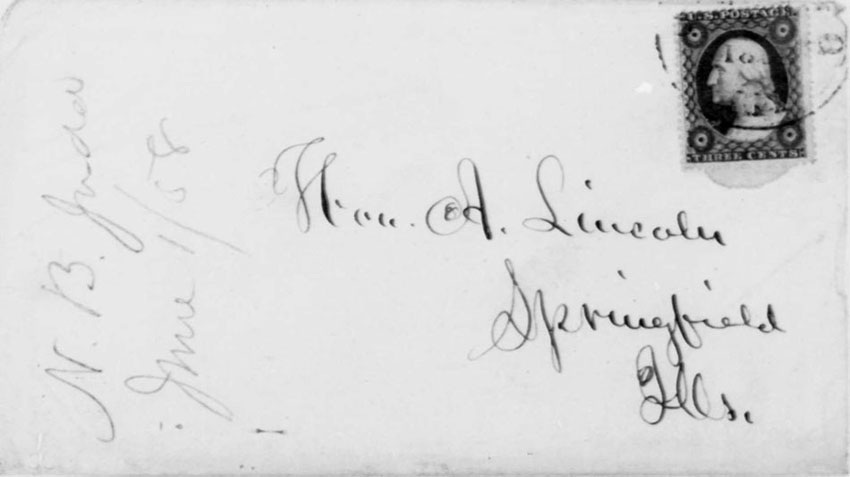 U.S. POSTAGE
THREE CENTS
Hon. A. Lincoln
Springfield
Ills.
N. B. Judd
June 1/58